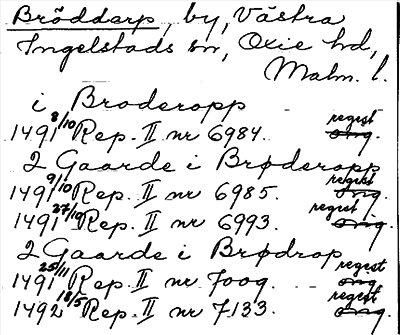 Bröddarp, by, Västra
Ingelstads sn, Oxie hd,
Malm. l.
i Broderopp
1491 8/10 Rep. II nr 6984. regest
2 Gaarde i Brøderopp
1491 9/10 Rep. II nr 6985. regest
1491 27/10 Rep. II nr 6993. regest
2 Gaarde i Brødrop
1491 25/11 Rep. II nr 7009. regest
1492 18/5 Rep. II nr 7133. regest